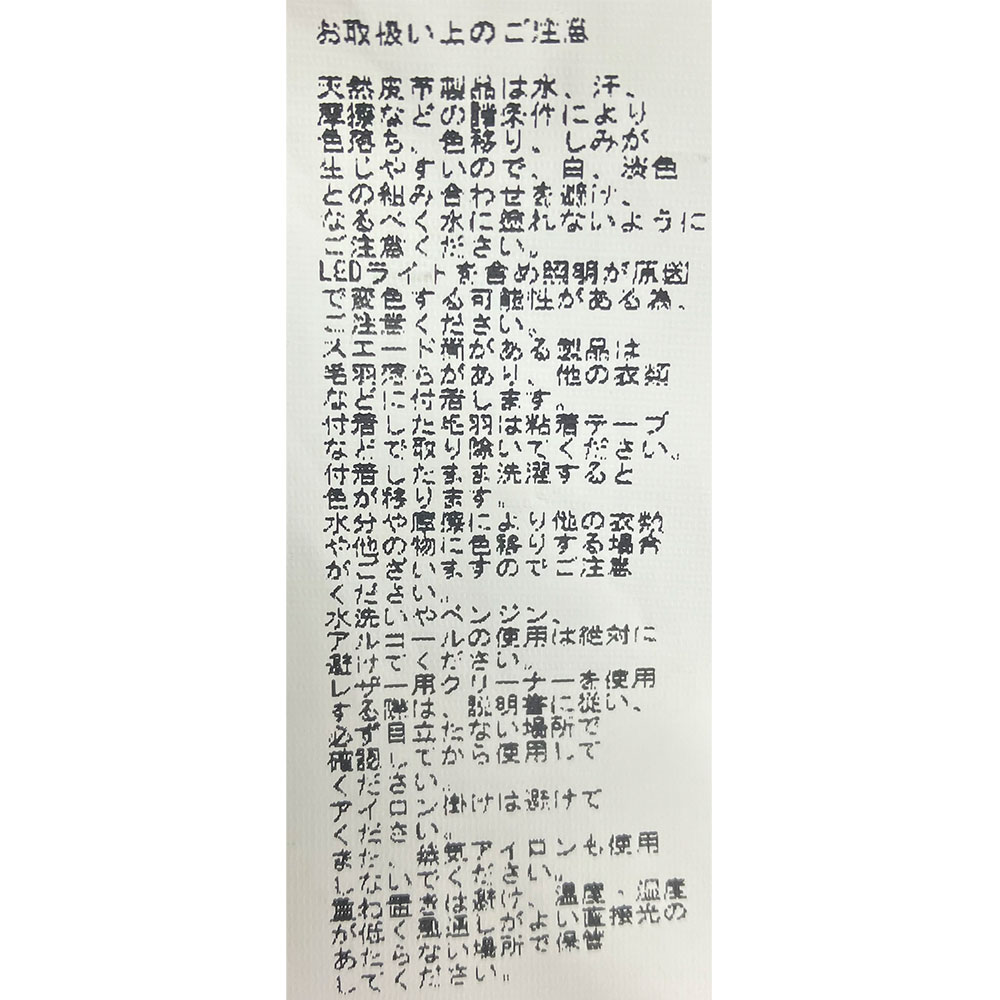 お取扱い上のご注意
天然皮革製品は水、汗、
摩擦などの諸条件により
色落ち、色移り、しみが
生じやすいので、白、淡色
との組み合わせを避け、
なるべく水に塗れないように
ご注意ください。
LEDライトを含め照明が原因
で変色する可能性がある為、
ご注意ください。
スエード面がある製品は
毛羽落ちがあり、他の衣類
などに付着します。
付着した毛羽は粘着テープ
などで取り除いてください。
付着したまま洗濯すると
色が移ります。
水分や摩擦により他の衣類
や他の物に色移りする場合
がございますのでご注意
ください。
水洗いやベンジン、
アルコールの使用は絶対に
避けてください。
レザー用クリーナーを使用
する際は、説明書に従い、
必ず目立たない場所で
確認してから使用して
ください。
アイロン掛けは避けて
ください。
また、蒸気アイロンも使用
しないでください。
置き
があ
して